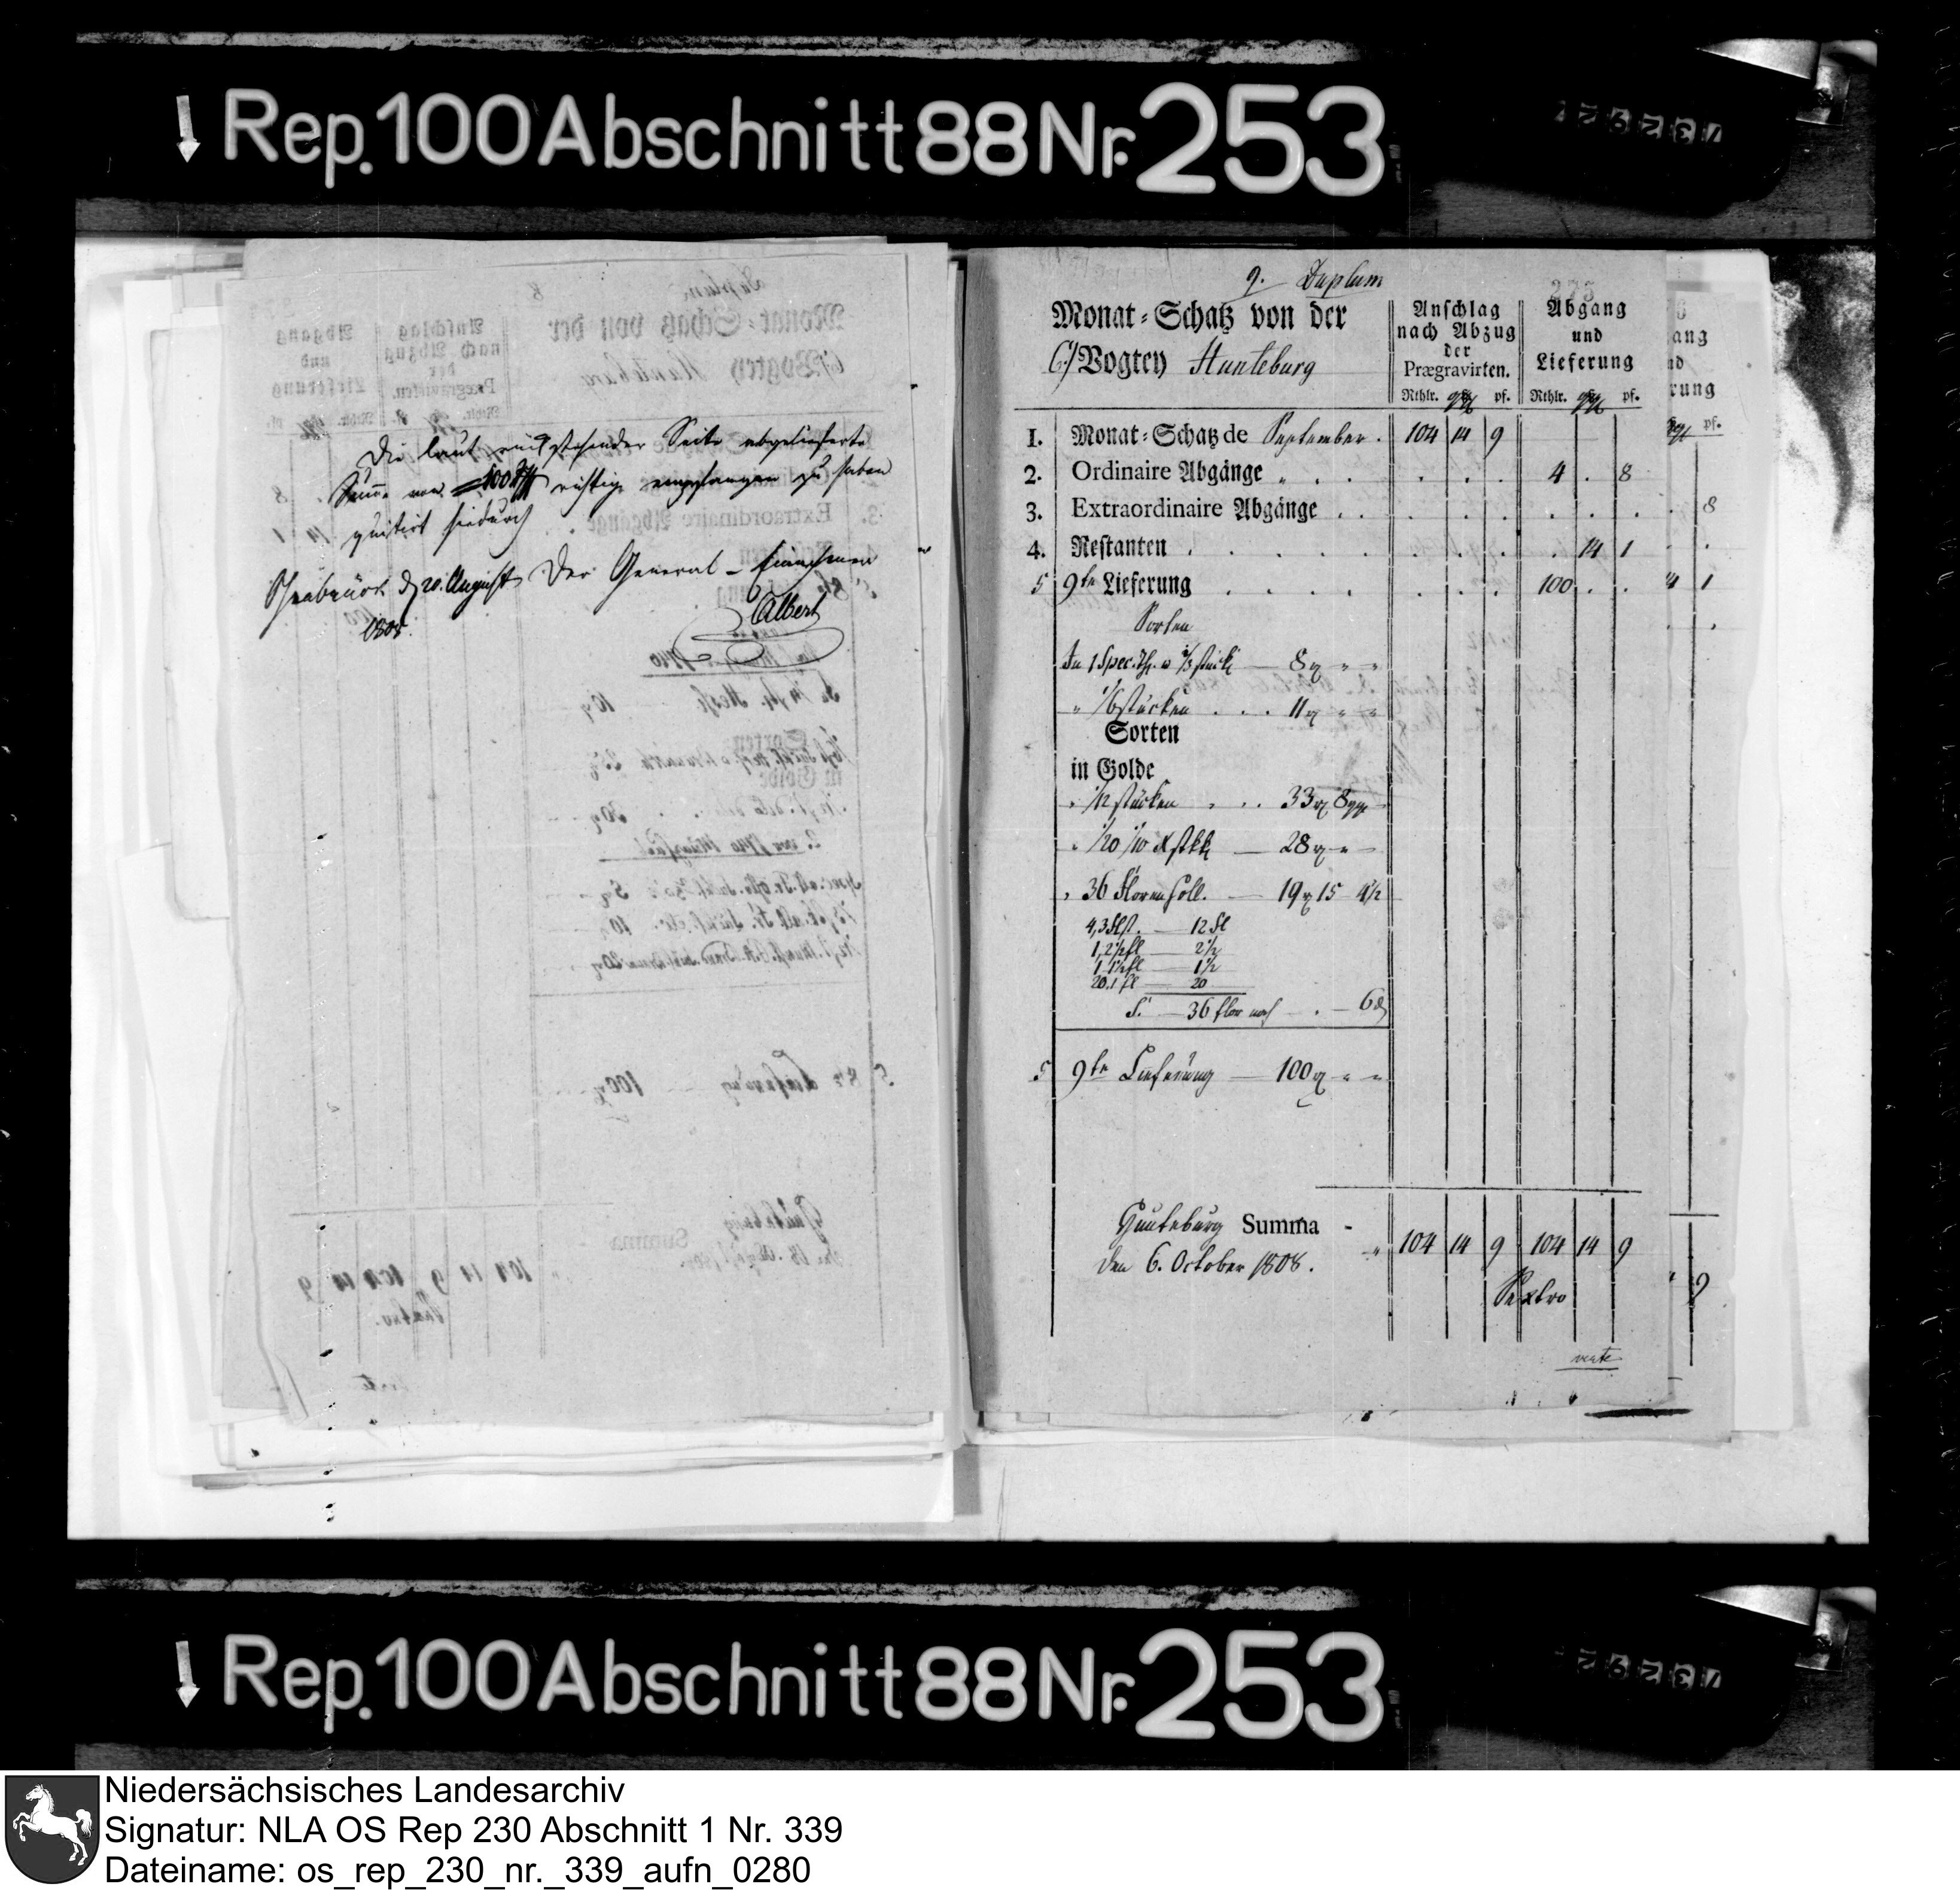 Rep. 100 Abschnitt 88 Nr. 253
Die laut umstehender Seite abgelieferte
Summe von 100 Rthl richtig empfangen zu haben
quitirt hiedurch
Osnabrück d 20. August Der General-Einnehmer
1808.
Albert
9. Duplum
275
Monat-Schatz von der
Vogtey Hunteburg
Anschlag nach Abzug der Prægravirten.
Abgang und Lieferung
Rthlr. pf. Rthlr. pf.
1. Monat-Schatz de September. 104 14 9
2. Ordinaire Abgänge 4 . 8
3. Extraordinaire Abgänge . .
4. Restanten . 14 1
5 9te Lieferung 100 . .
Sorten
In 1 Spec. Th. u 1/3 stück — 8 " "
" 1/6 stücken . . . 11 " "
Sorten
in Golde
" 1/12 stücken " . . 33 8
1/20 1/10 — 28
" 36 Floren holl. — 19 15 4 1/2
4, 3 fl st. — 12 fl
1, 2 1/2 fl — 2 1/2
1 1 1/2 fl — 1 1/2
20. 1 fl — 20
S. — 36 flor
5 9te Lieferung — 100 " "
Hunteburg Summa - 104 14 9 104 14 9
den 6. October 1808.
Sextro
verte
Rep. 100 Abschnitt 88 Nr. 253
Niedersächsisches Landesarchiv
Signatur: NLA OS Rep 230 Abschnitt 1 Nr. 339
Dateiname: os_rep_230_nr._339_aufn_0280